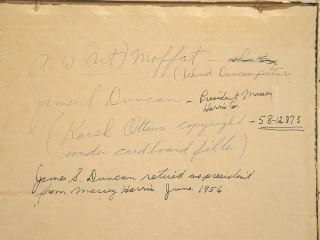 A W (Art) Moffat -
(behind Duncan picture
James S Duncan - President Massey
Harris Co.
(Karsh Ottawa copyright - 58-12873
under cardboard filler)
James S. Duncan retired as president
from Massey Harris June 1956